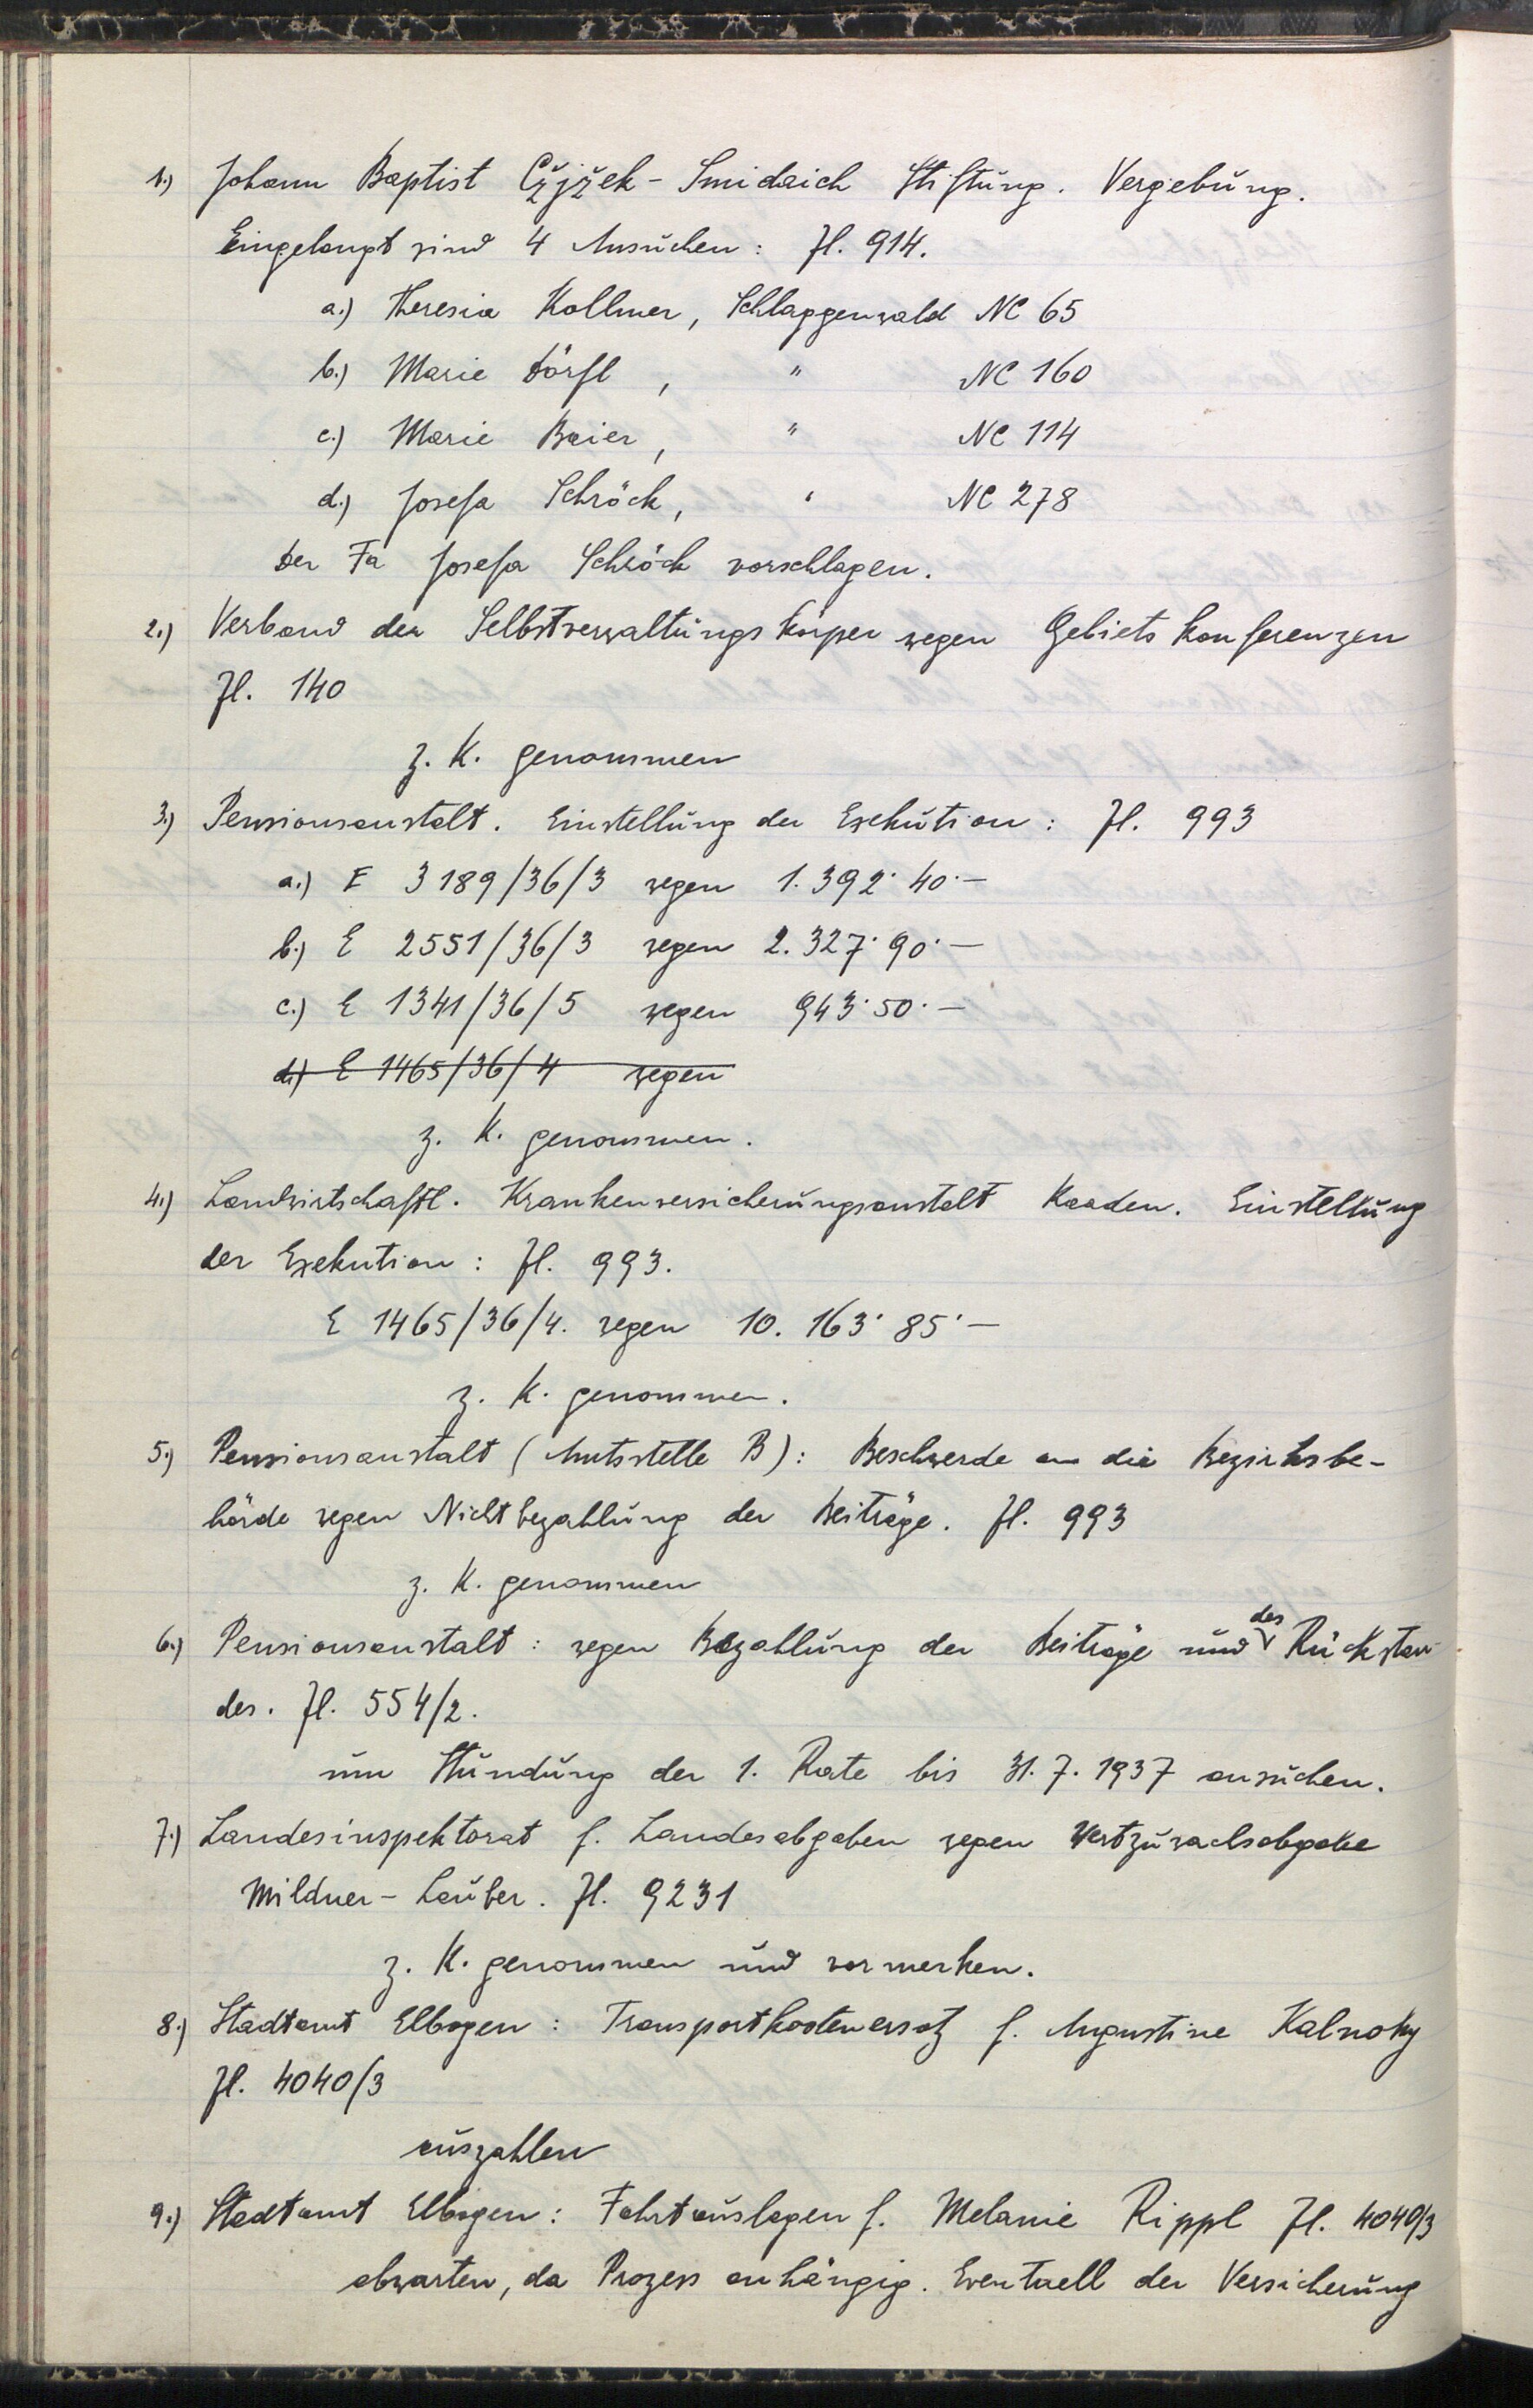 1.) Johann Baptist Cžjžek - Smidaich Stiftung. Vergebung.
Eingelangt sind 4 Ansuchen: Zl. 914.
a.) Theresia Kollmer, Schlaggenwald NC 65
b.) Marie Dörfl, " NC 160
c.) Marie Baier, " NC 114
d.) Josefa Schröck, " NC 278
Der Fa Josefa Schröck vorschlagen.
2.) Verband der Selbstverwaltungskörper wegen Gebietskonferenzen
Zl. 140
z. K. genommen
3.) Pensionsanstalt. Einstellung der Exekution: Zl. 993
a.) E 3189/36/3 wegen 1.392·40·—
b.) E 2551/36/3 wegen 2.327·90·—
c.) E 1341/36/5 wegen 943·50·—
d.) E 1465/36/4 wegen
z. K. genommen.
4.) Landwirtschaftl. Krankenversicherungsanstalt Kaaden. Einstellung
der Exekution: Zl. 993.
E 1465/36/4. wegen 10.163·85·—
z. K. genommen.
5.) Pensionsanstalt (Amtsstelle B): Beschwerde an die Bezirksbe-
hörde wegen Nichtbezahlung der Beiträge. Zl. 993
z. K. genommen
6.) Pensionsanstalt: wegen Bezahlung der Beiträge und des Rückstan-
des. Zl. 554/2.
um Stundung der 1. Rate bis 31.7.1937 ansuchen.
7.) Landesinspektorat f. Landesabgaben wegen Wertzuwachsabgabe
Mildner - Lauber. Zl. 9231
z. K. genommen und vormerken.
8.) Stadtamt Elbogen: Transportkostenersatz f. Augustine Kalnoky
Zl. 4040/3
auszahlen
9.) Stadtamt Elbogen: Fahrtauslagen f. Melanie Rippl Zl. 4040/3
abwarten, da Prozess anhängig. Eventuell der Versicherung